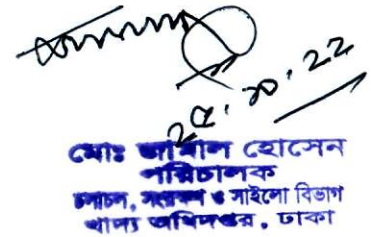 ২৫.১০.২২
মোঃ জামাল হোসেন
পরিচালক
চলাচল, সংরক্ষণ ও সাইলো বিভাগ
খাদ্য অধিদপ্তর, ঢাকা